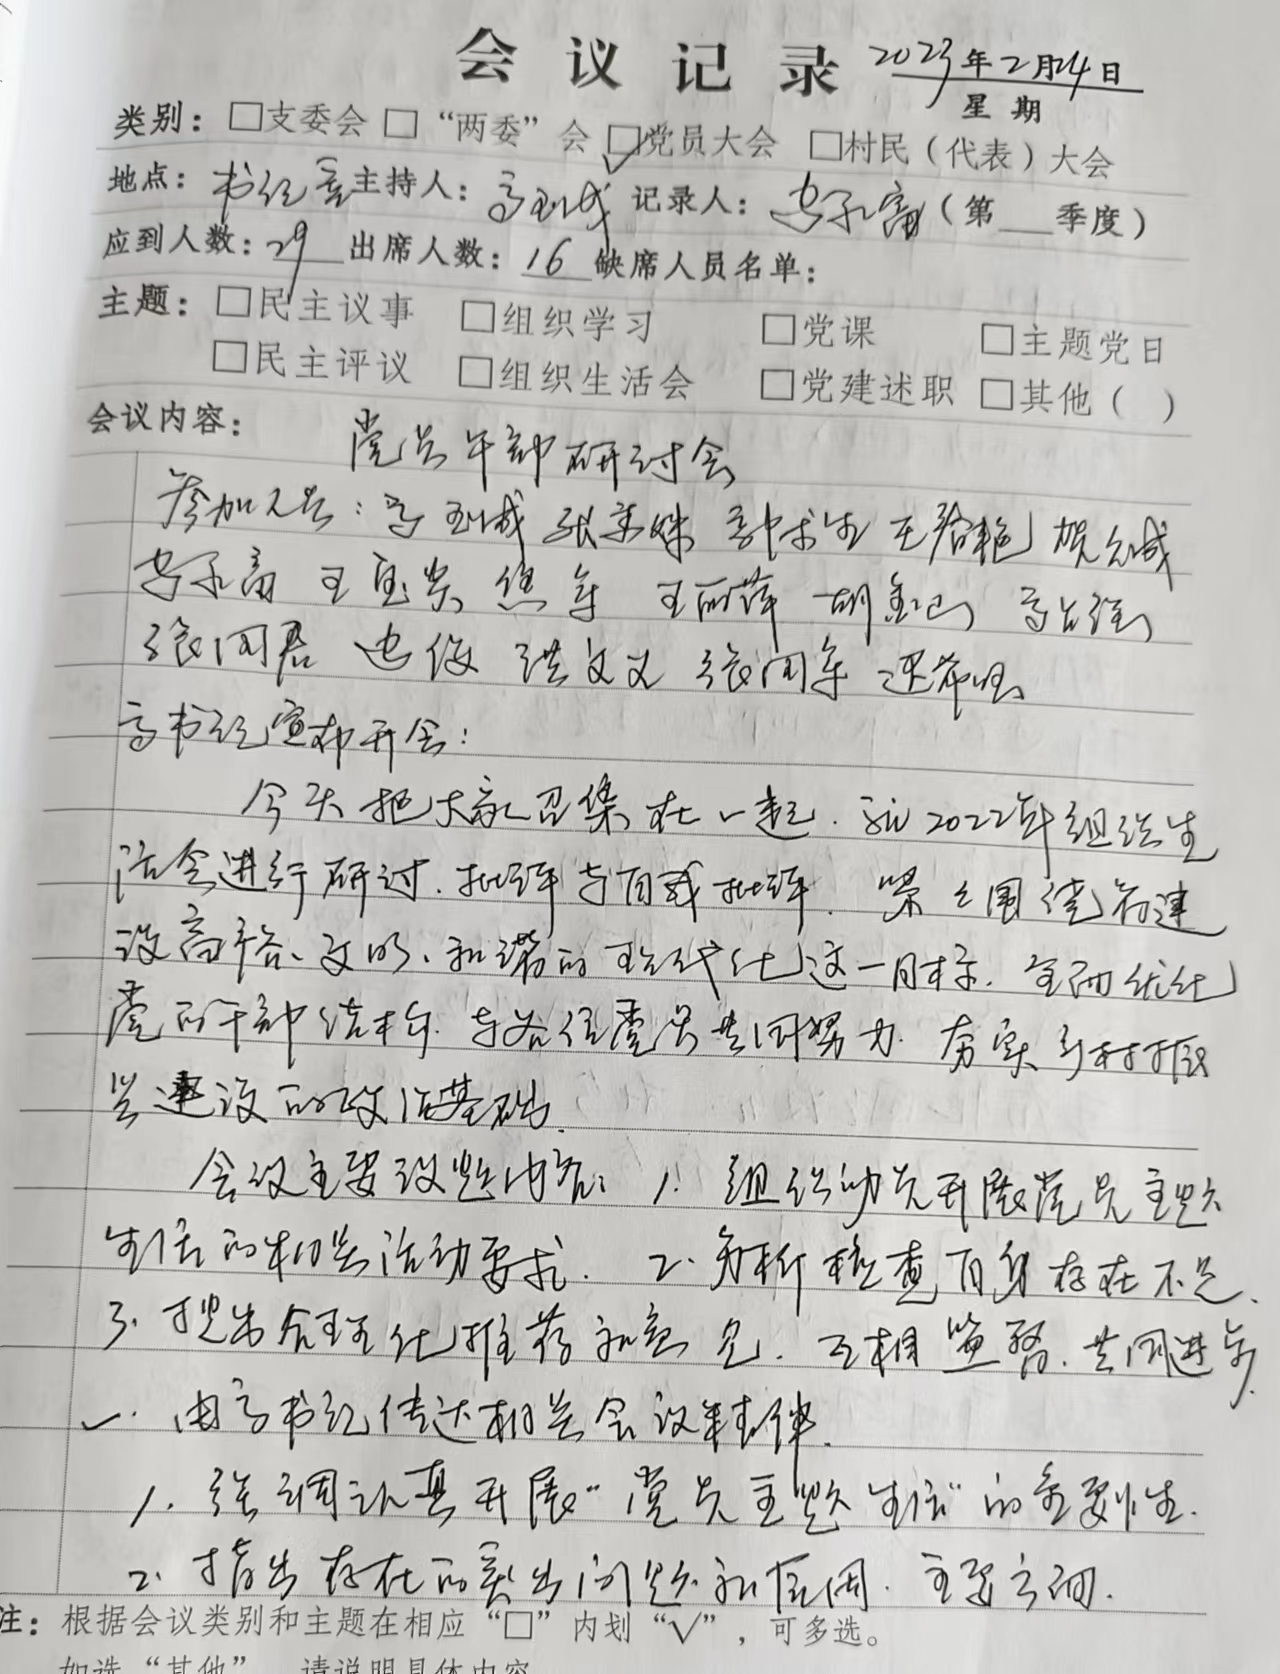 会议记录 2023年2月24日
星期
类别：□支委会 □“两委”会 ☑党员大会 □村民（代表）大会
地点：书记室 主持人：高玉成 记录人：（第 季度）
应到人数：29 出席人数：16 缺席人员名单：
主题：□民主议事 □组织学习 □党课 □主题党日
□民主评议 □组织生活会 □党建述职 □其他（ ）
会议内容： 党员干部研讨会
参加人员：高玉成
王丽萍 胡金山
张国君 洪文义
高书记宣布开会：
今天把大家召集在一起．就2022年组织生
活会进行研讨．批评与自我批评．紧紧围绕着建
设高裕、文明、和谐的现代化这一目标．全面优化
党的干部结构．与各位党员共同努力．夯实乡村振
兴建设的政治基础．
会议主要议题内容：1．组织动员开展党员主题
生活的相关活动要求． 2．分析检查自身存在不足．
3．提出合理化推荐和意见．互相监督．共同进步．
一．由高书记传达相关会议精神．
1．强调认真开展“党员主题生活”的重要性．
2．指出存在的突出问题和原因．主要方面．
注：根据会议类别和主题在相应“□”内划“√”，可多选。
如选“其他”，请说明具体内容